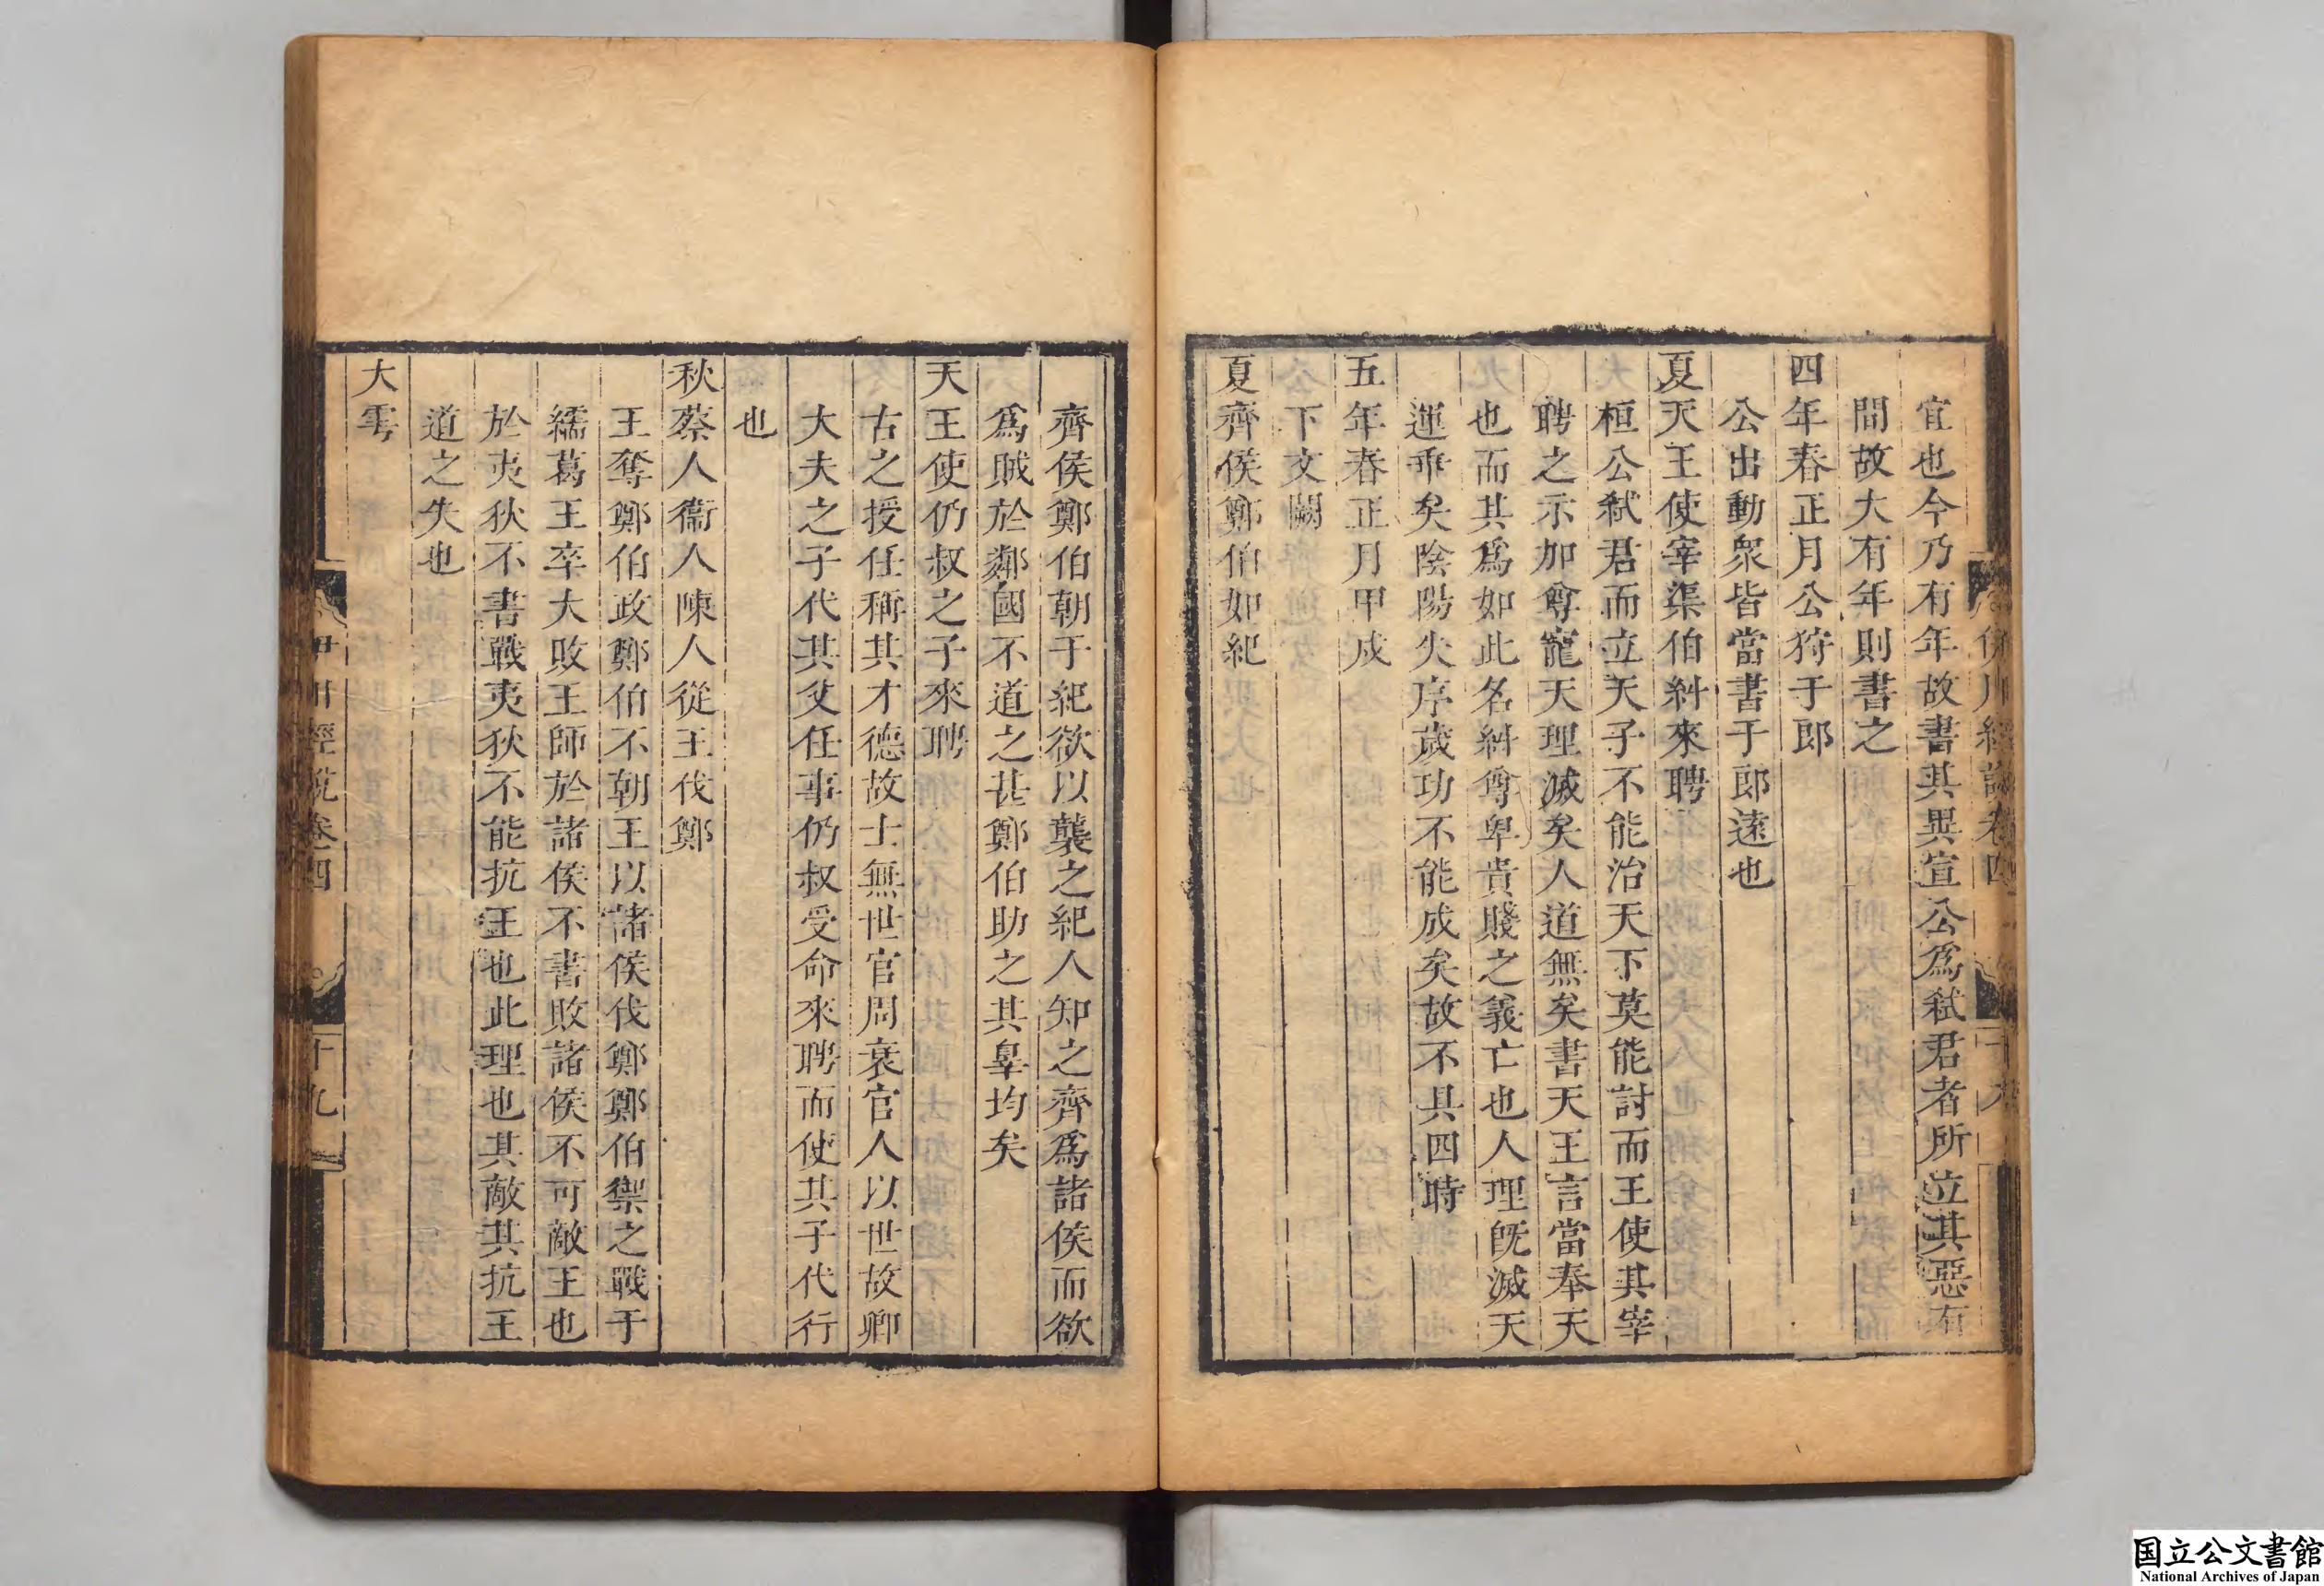 伊川經說卷四
宜也今乃有年故書其異宣公爲弒君者所立其惡有
間故大有年則書之
四年春正月公狩于郎
公出動衆皆當書于郎遠也
夏天王使宰渠伯糾來聘
桓公弒君而立天子不能治天下莫能討而王使其宰
聘之示加尊寵天理滅矣人道無矣書天王言當奉天
也而其爲如此名糾尊卑貴賤之義亡也人理旣滅天
運乖矣陰陽失序歲功不能成矣故不具四時
五年春正月甲戌
下文闕
夏齊侯鄭伯如紀
齊侯鄭伯朝于紀欲以襲之紀人知之齊爲諸侯而欲
爲賊於鄰國不道之甚鄭伯助之其辠均矣
天王使仍叔之子來聘
古之授任稱其才德故士無世官周衰官人以世故卿
大夫之子代其父任事仍叔受命來聘而使其子代行
也
秋蔡人衞人陳人從王伐鄭
王奪鄭伯政鄭伯不朝王以諸侯伐鄭鄭伯禦之戰于
繻葛王卒大敗王師於諸侯不書敗諸侯不可敵王也
於夷狄不書戰夷狄不能抗王也此理也其敵其抗王
道之失也
大雩
伊川經說卷四
十九
国立公文書館
National Archives of Japan